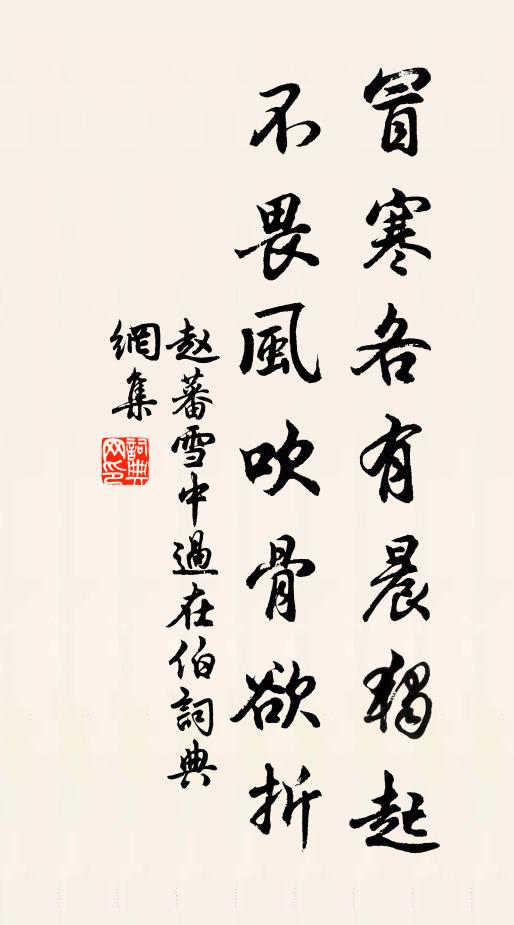 冒寒各有晨獨起
不畏風吹骨欲折
赵蕃雪中過在伯詞典
網集
詞典
网印